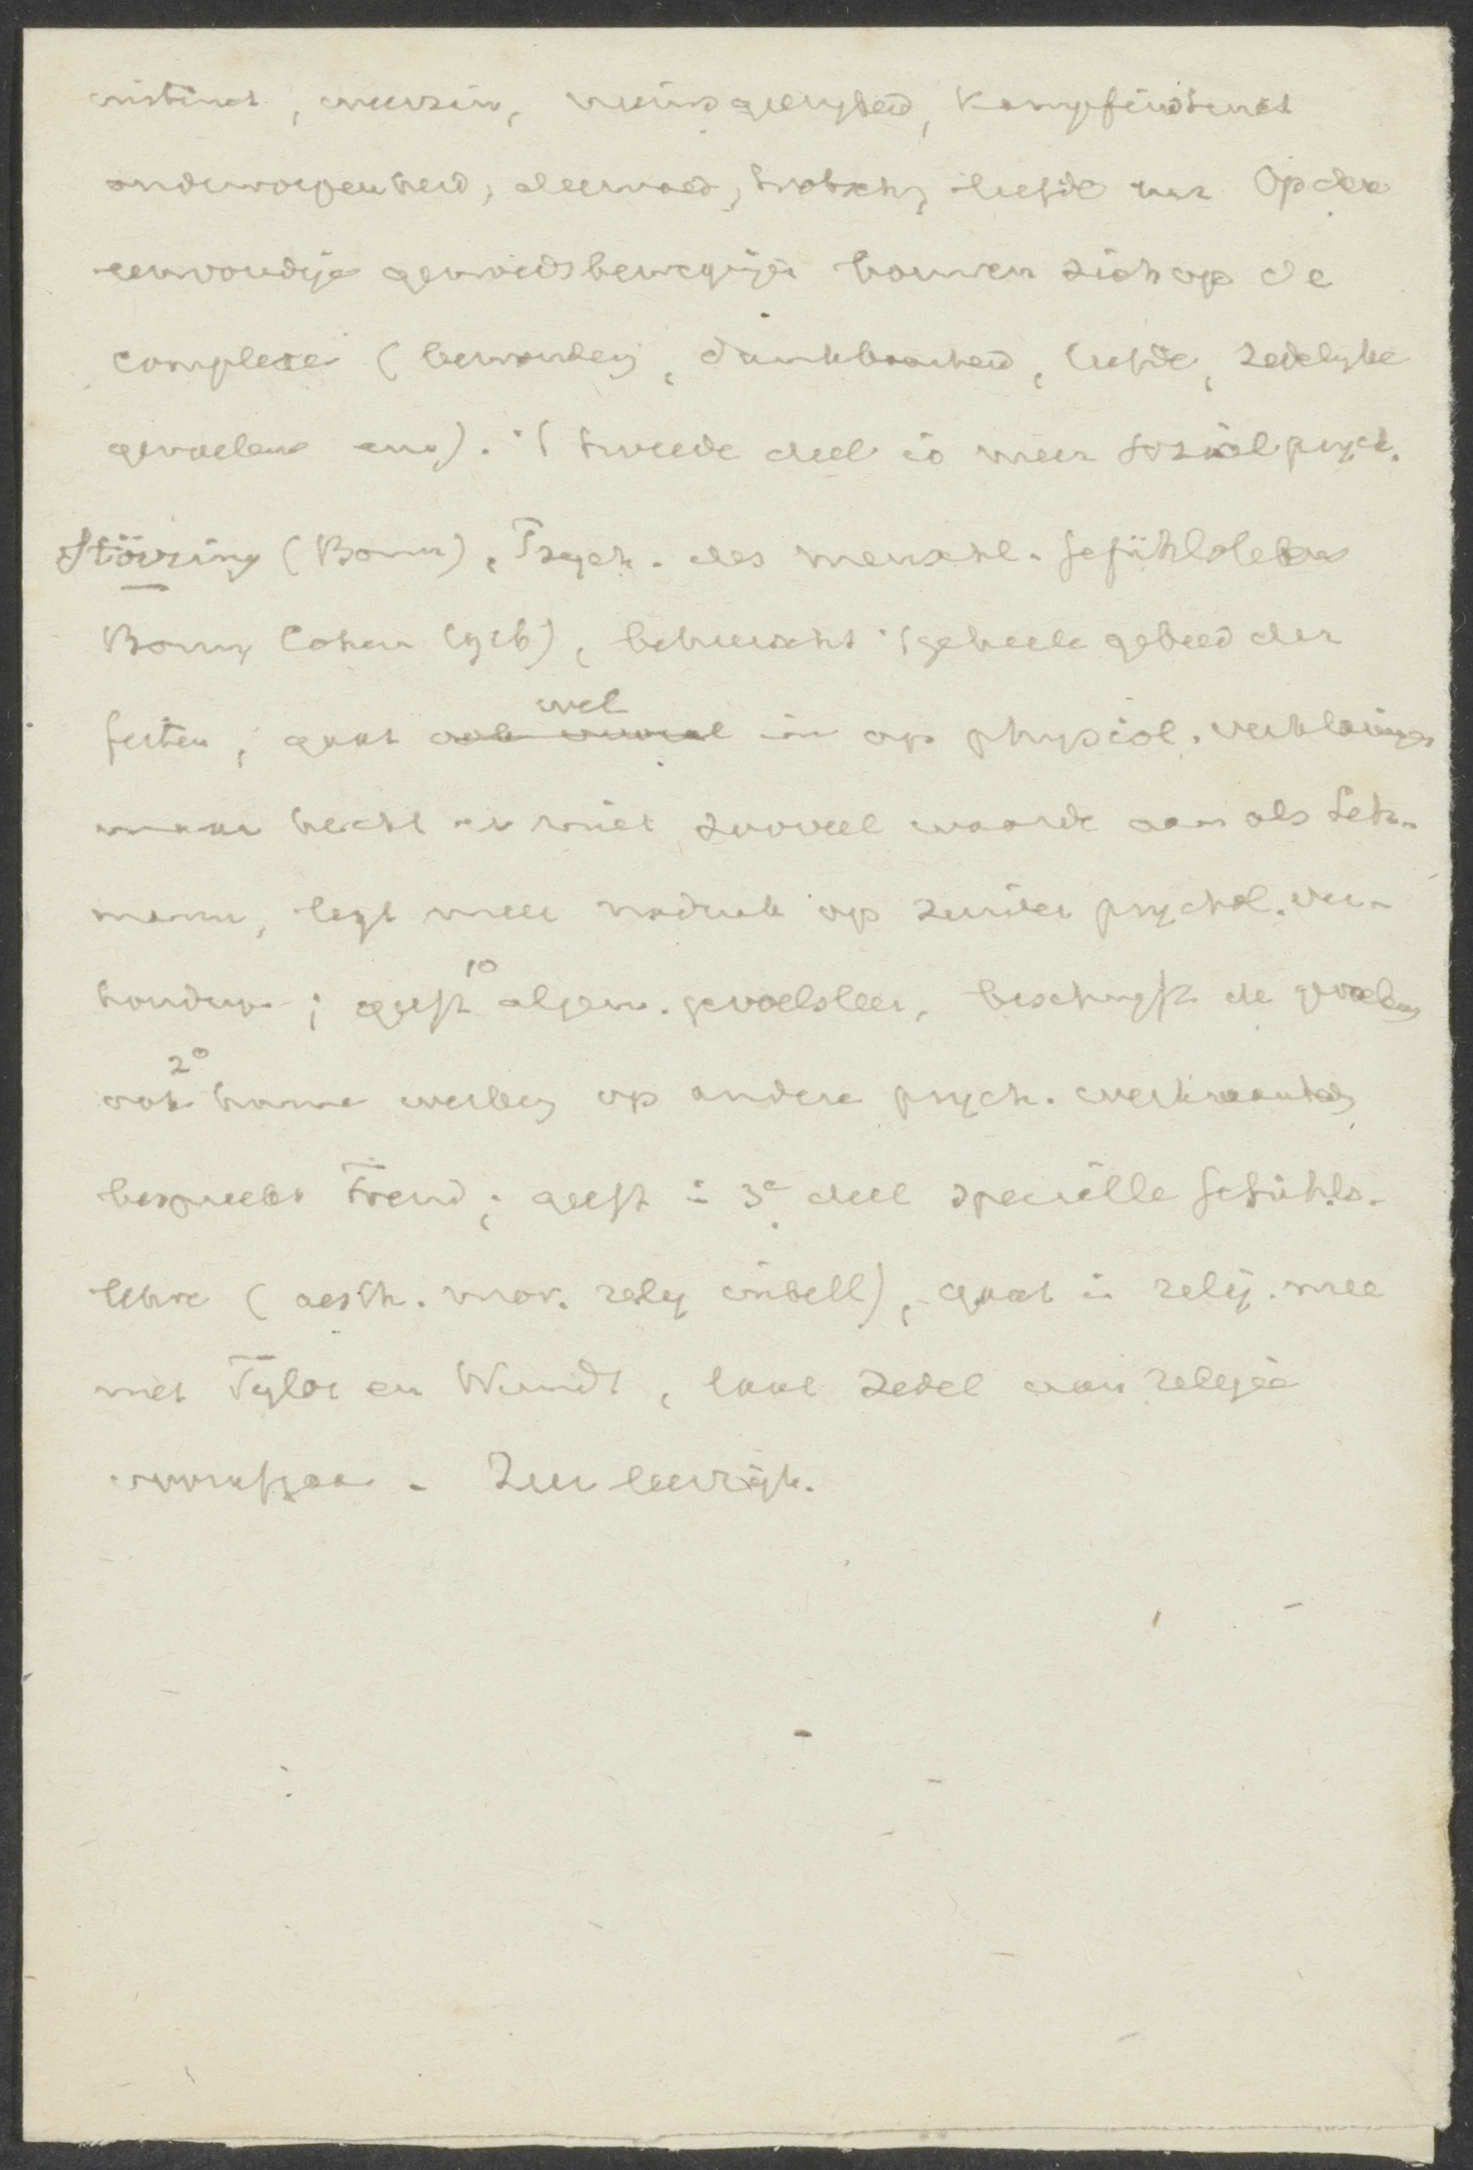 instinct, weerzin, nieuwsgierigheid, Kampfinstinct
onderworpenheid, deemoed, liefde enz. Op deze
eenvoudige gemoedsbewegingen bouwen zich op de
complexe (bewondering, dankbaarheid, liefde, zedelijke
gevoelens enz). 't tweede deel is meer sozialpsych.
Störring (Bonn), Psych. des menschl. Gefühlslebens
Bonn, Cohen 1916), beheerscht 't geheele gebied der
feiten, gaat wel in op physiol. verklaringen
maar hecht er niet zooveel waarde aan als Leh-
mann, legt meer nadruk op zuiver psychol. ver-
houdingen; geeft 1° algem. gevoelsleer, beschrijft de gevoelens
ook 2° hunne werking op andere psych.
bespreekt Freud; geeft in 3e deel specielle Gefühls-
lehre (aesth. mor. relig intell), gaat in relig. mee
met Tylor en Wundt, laat zedel aan religie
voorafgaan. Zeer leerrijk.